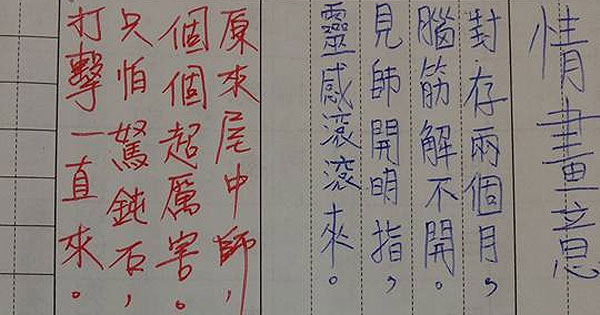 情畫意
封存兩個月，
腦筋解不開。
見師開明指，
靈感滾滾來。
原來尾中師，
個個超厲害。
只怕駑鈍石，
打擊一直來。